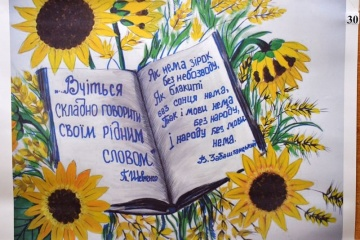 30
...Вчіться
складно говорити
своїм рідним
словом"
Т. Шевченко
Як нема зірок
без небозводу,
Як блакиті
без сонця нема,
так і мови нема
без народу,
і народу без мови
нема.
В.